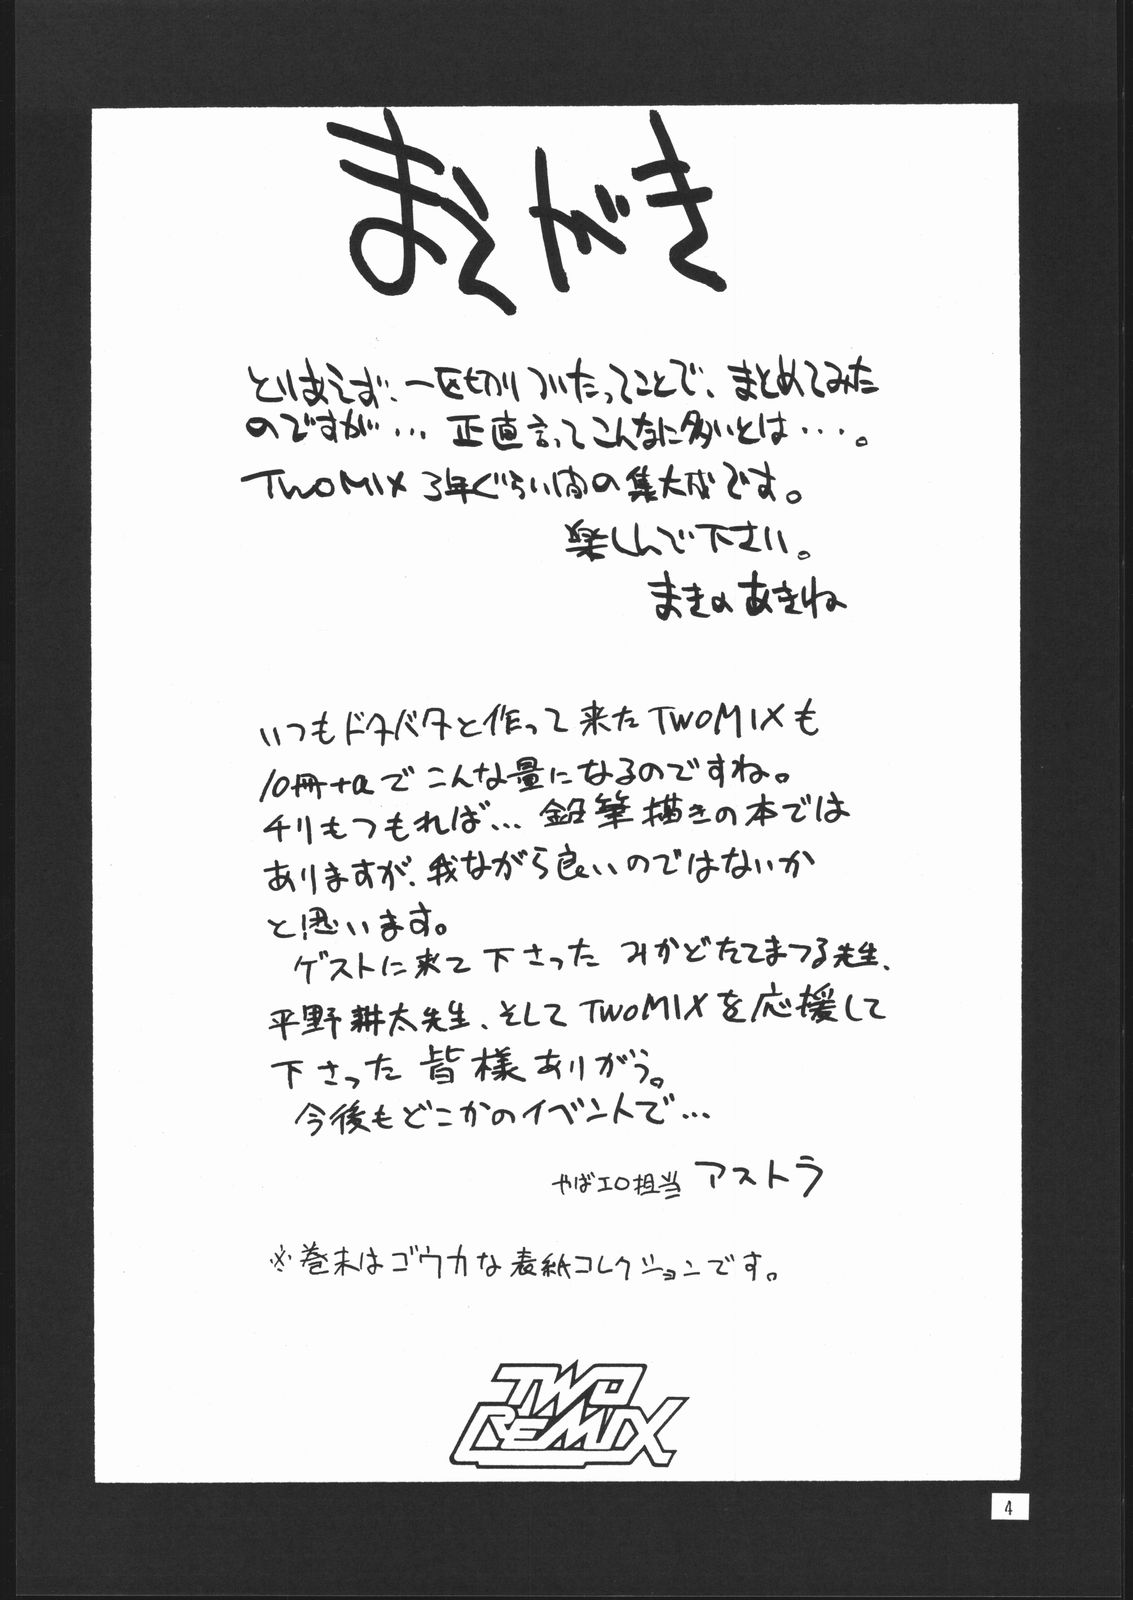 まえがき
とりあえず、一区切りついたってことで、まとめてみた
のですが… 正直言ってこんなに多いとは・・・。
TWOMIX 3年ぐらい間の集大成です。
楽しんで下さい。
まきのあきね
いつもドタバタと作って来たTWOMIXも
10冊+αでこんな量になるのですね。
チリもつもれば… 鉛筆描きの本では
ありますが、我ながら良いのではないか
と思います。
ゲストに来て下さった みかどたてまつる先生、
平野耕太先生、そしてTWOMIXを応援して
下さった皆様ありがう。
今後もどこかのイベントで…
やばエロ担当 アストラ
※巻末はゴウカな表紙コレクションです。
TWO
REMIX
4